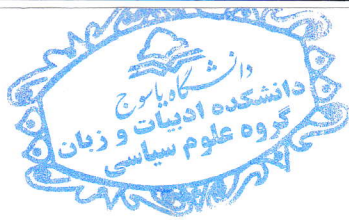 دانشگاه یاسوج
دانشکده ادبیات و زبان
گروه علوم سیاسی